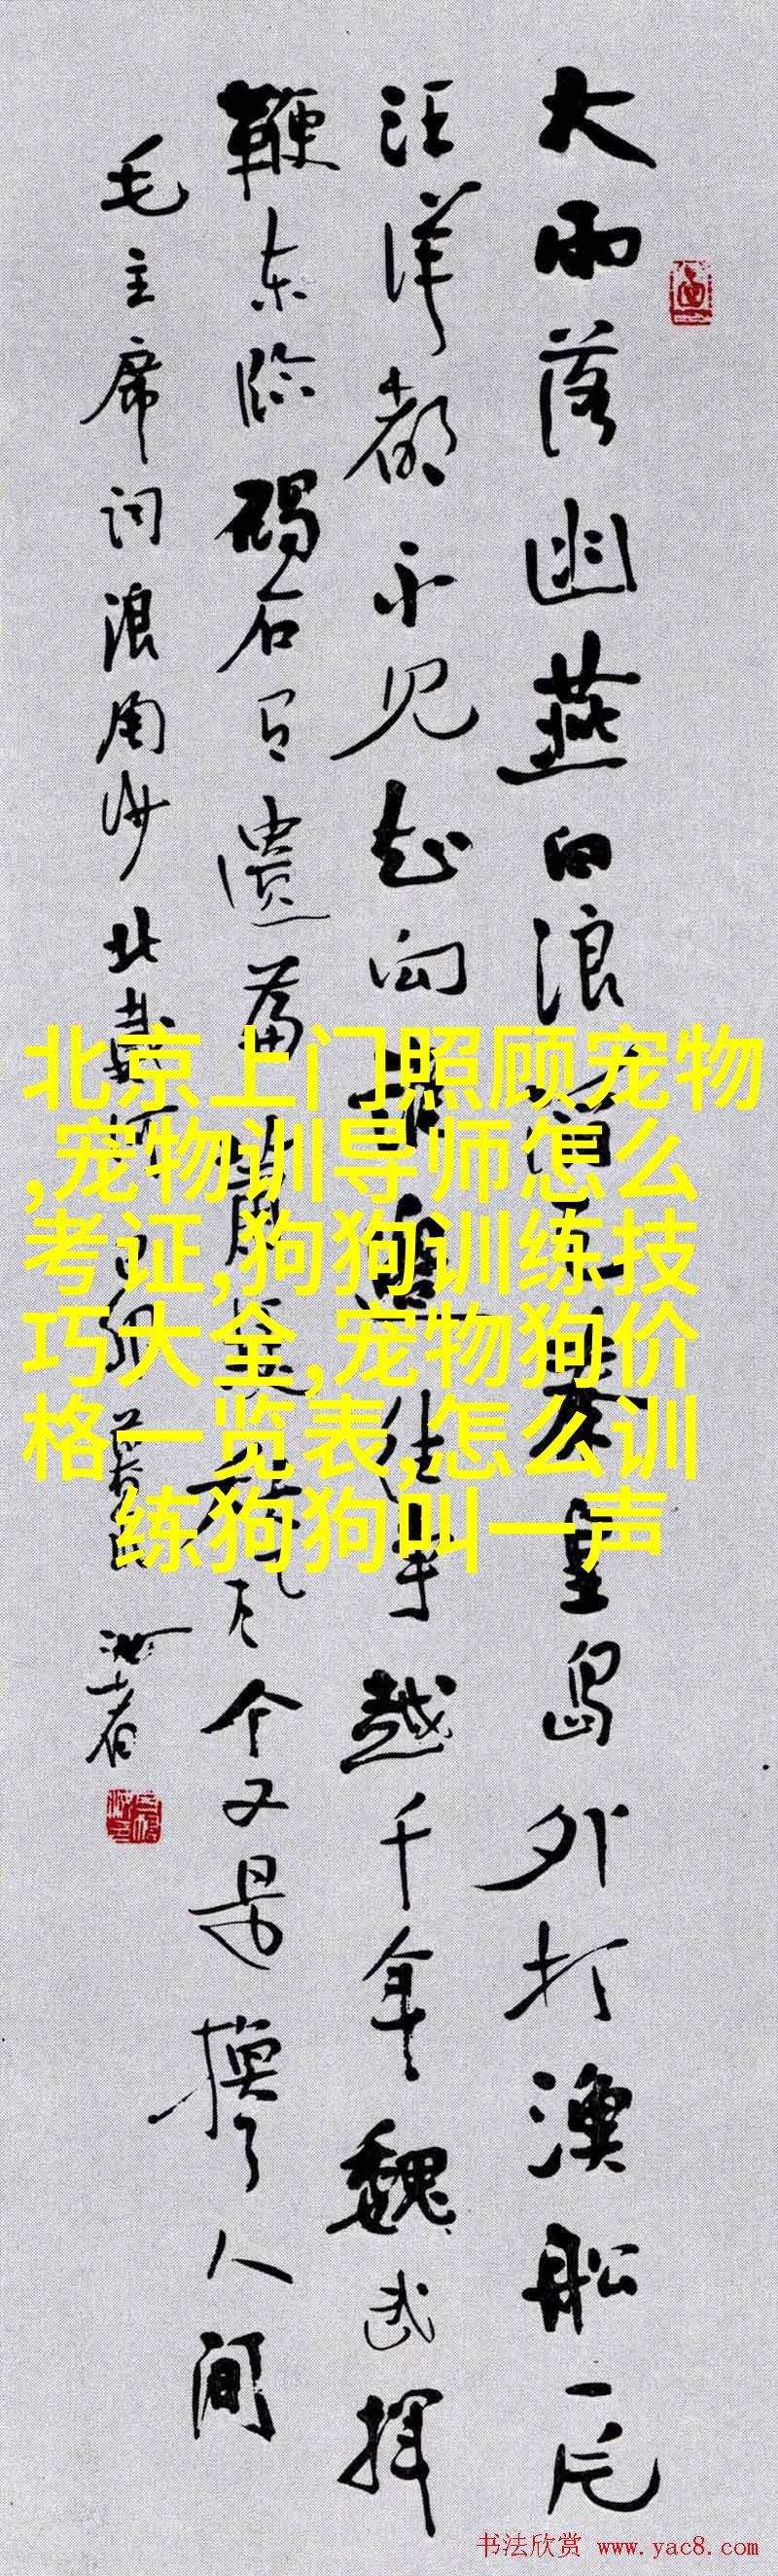 大雨落幽燕白浪滔天秦皇岛外打漁船一片
汪洋都不见知向谁边往事越千年魏武揮
鞭东临碣石有遗篇萧瑟秋风今又是换了人间
毛主席词浪淘沙北戴河
北京上门照顾宠物
,宠物训导师怎么
考证,狗狗训练技
巧大全,宠物狗价
格一览表,怎么训
练狗狗叫一声
书法欣赏 www.yac8.com